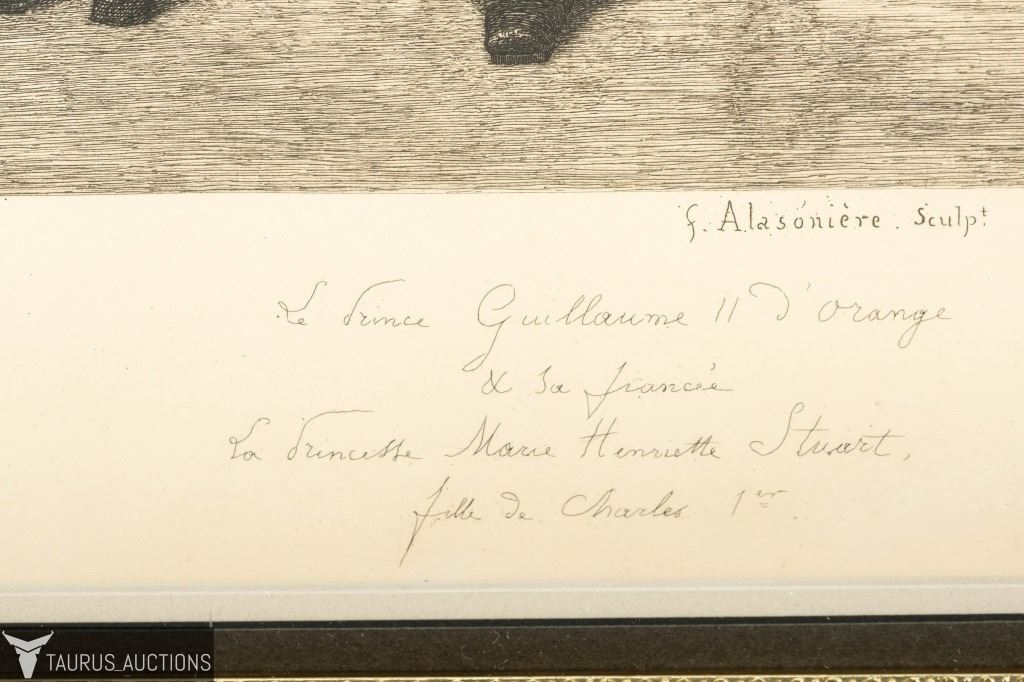 f. Alasónière. Sculpt
Le Prince Guillaume II d'orange
& sa fiancée
La Princesse Marie Henriette Stuart,
fille de Charles 1er.
TAURUS_AUCTIONS